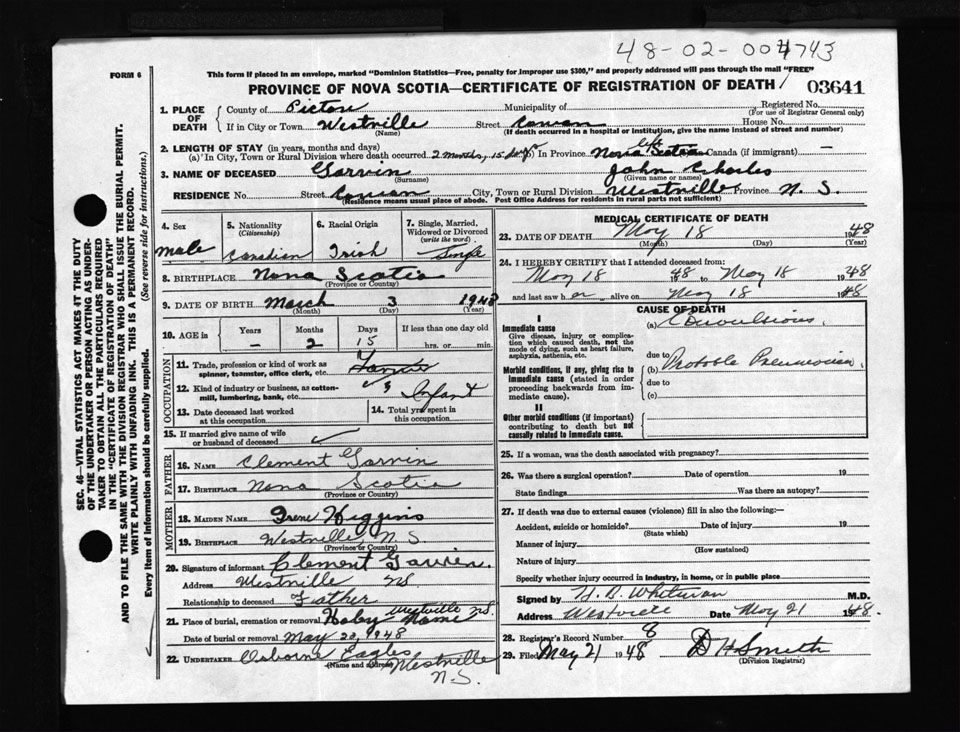 48-02-004743
FORM 6
This form if placed in an envelope, marked "Dominion Statistics—Free, penalty for improper use $300," and properly addressed will pass through the mail "FREE"
PROVINCE OF NOVA SCOTIA—CERTIFICATE OF REGISTRATION OF DEATH 03641
1. PLACE OF DEATH
County of Pictou Municipality of Registered No.
(For use of Registrar General only)
If in City or Town Westville Street Cowan House No.
(Name) (If death occurred in a hospital or institution, give the name instead of street and number)
2. LENGTH OF STAY (in years, months and days)
(a) In City, Town or Rural Division where death occurred 2 months, 15 days In Province life Nova Scotia Canada (if immigrant) —
3. NAME OF DECEASED Garvin John Charles
(Surname) (Given name or names)
RESIDENCE No. Street Cowan City, Town or Rural Division Westville Province N. S.
(Residence means usual place of abode. Post Office Address for residents in rural parts not sufficient)
4. Sex
male
5. Nationality
(Citizenship)
Canadian
6. Racial Origin
Irish
7. Single, Married, Widowed or Divorced
(write the word)
Single
8. BIRTHPLACE Nova Scotia
(Province or Country)
9. DATE OF BIRTH March 3 1948
(Month) (Day) (Year)
10. AGE in Years Months Days If less than one day old
— 2 15 hrs. or min.
OCCUPATION
11. Trade, profession or kind of work as
spinner, teamster, office clerk, etc.
12. Kind of industry or business, as cotton-
mill, lumbering, bank, etc. Infant
13. Date deceased last worked
at this occupation
14. Total yrs spent in
this occupation
15. If married give name of wife
or husband of deceased
FATHER
16. NAME Clement Garvin
17. BIRTHPLACE Nova Scotia
(Province or Country)
MOTHER
18. MAIDEN NAME Irene Higgins
19. BIRTHPLACE Westville, N. S.
(Province or Country)
20. Signature of informant Clement Garvin.
Address Westville NS
Relationship to deceased Father
21. Place of burial, cremation or removal Holy Name Westville N.S.
Date of burial or removal May 20, 1948
22. UNDERTAKER Osborne Eagles Westville
(Name and address)
N.S.
MEDICAL CERTIFICATE OF DEATH
23. DATE OF DEATH May 18 1948
(Month) (Day) (Year)
24. I HEREBY CERTIFY that I attended deceased from:
May 18 1948 to May 18 1948
and last saw h alive on May 18 1948
CAUSE OF DEATH
I
Immediate cause
Give disease, injury or complication which caused death, not the mode of dying, such as heart failure, asphyxia, asthenia, etc.
(a) Convulsions.
due to
Morbid conditions, if any, giving rise to immediate cause (stated in order proceeding backwards from immediate cause).
(b) Probable Pneumonia
due to
(c)
II
Other morbid conditions (if important) contributing to death but not causally related to immediate cause.
25. If a woman, was the death associated with pregnancy?
26. Was there a surgical operation? Date of operation 19
State findings Was there an autopsy?
27. If death was due to external causes (violence) fill in also the following:—
Accident, suicide or homicide? Date of injury 19
(State which)
Manner of injury
(How sustained)
Nature of injury
Specify whether injury occurred in industry, in home, or in public place
Signed by H. D. Whitman M.D.
Address Westville Date May 21 1948.
28. Registrar's Record Number 8
29. Filed May 21 1948 D H Smith
(Division Registrar)
SEC. 46—VITAL STATISTICS ACT MAKES IT THE DUTY
OF THE UNDERTAKER OR PERSON ACTING AS UNDER-
TAKER TO OBTAIN ALL THE PARTICULARS REQUIRED
IN THE "CERTIFICATE OF REGISTRATION OF DEATH"
AND TO FILE THE SAME WITH THE DIVISION REGISTRAR WHO SHALL ISSUE THE BURIAL PERMIT.
WRITE PLAINLY WITH UNFADING INK. THIS IS A PERMANENT RECORD.
Every item of information should be carefully supplied. (See reverse side for instructions.)